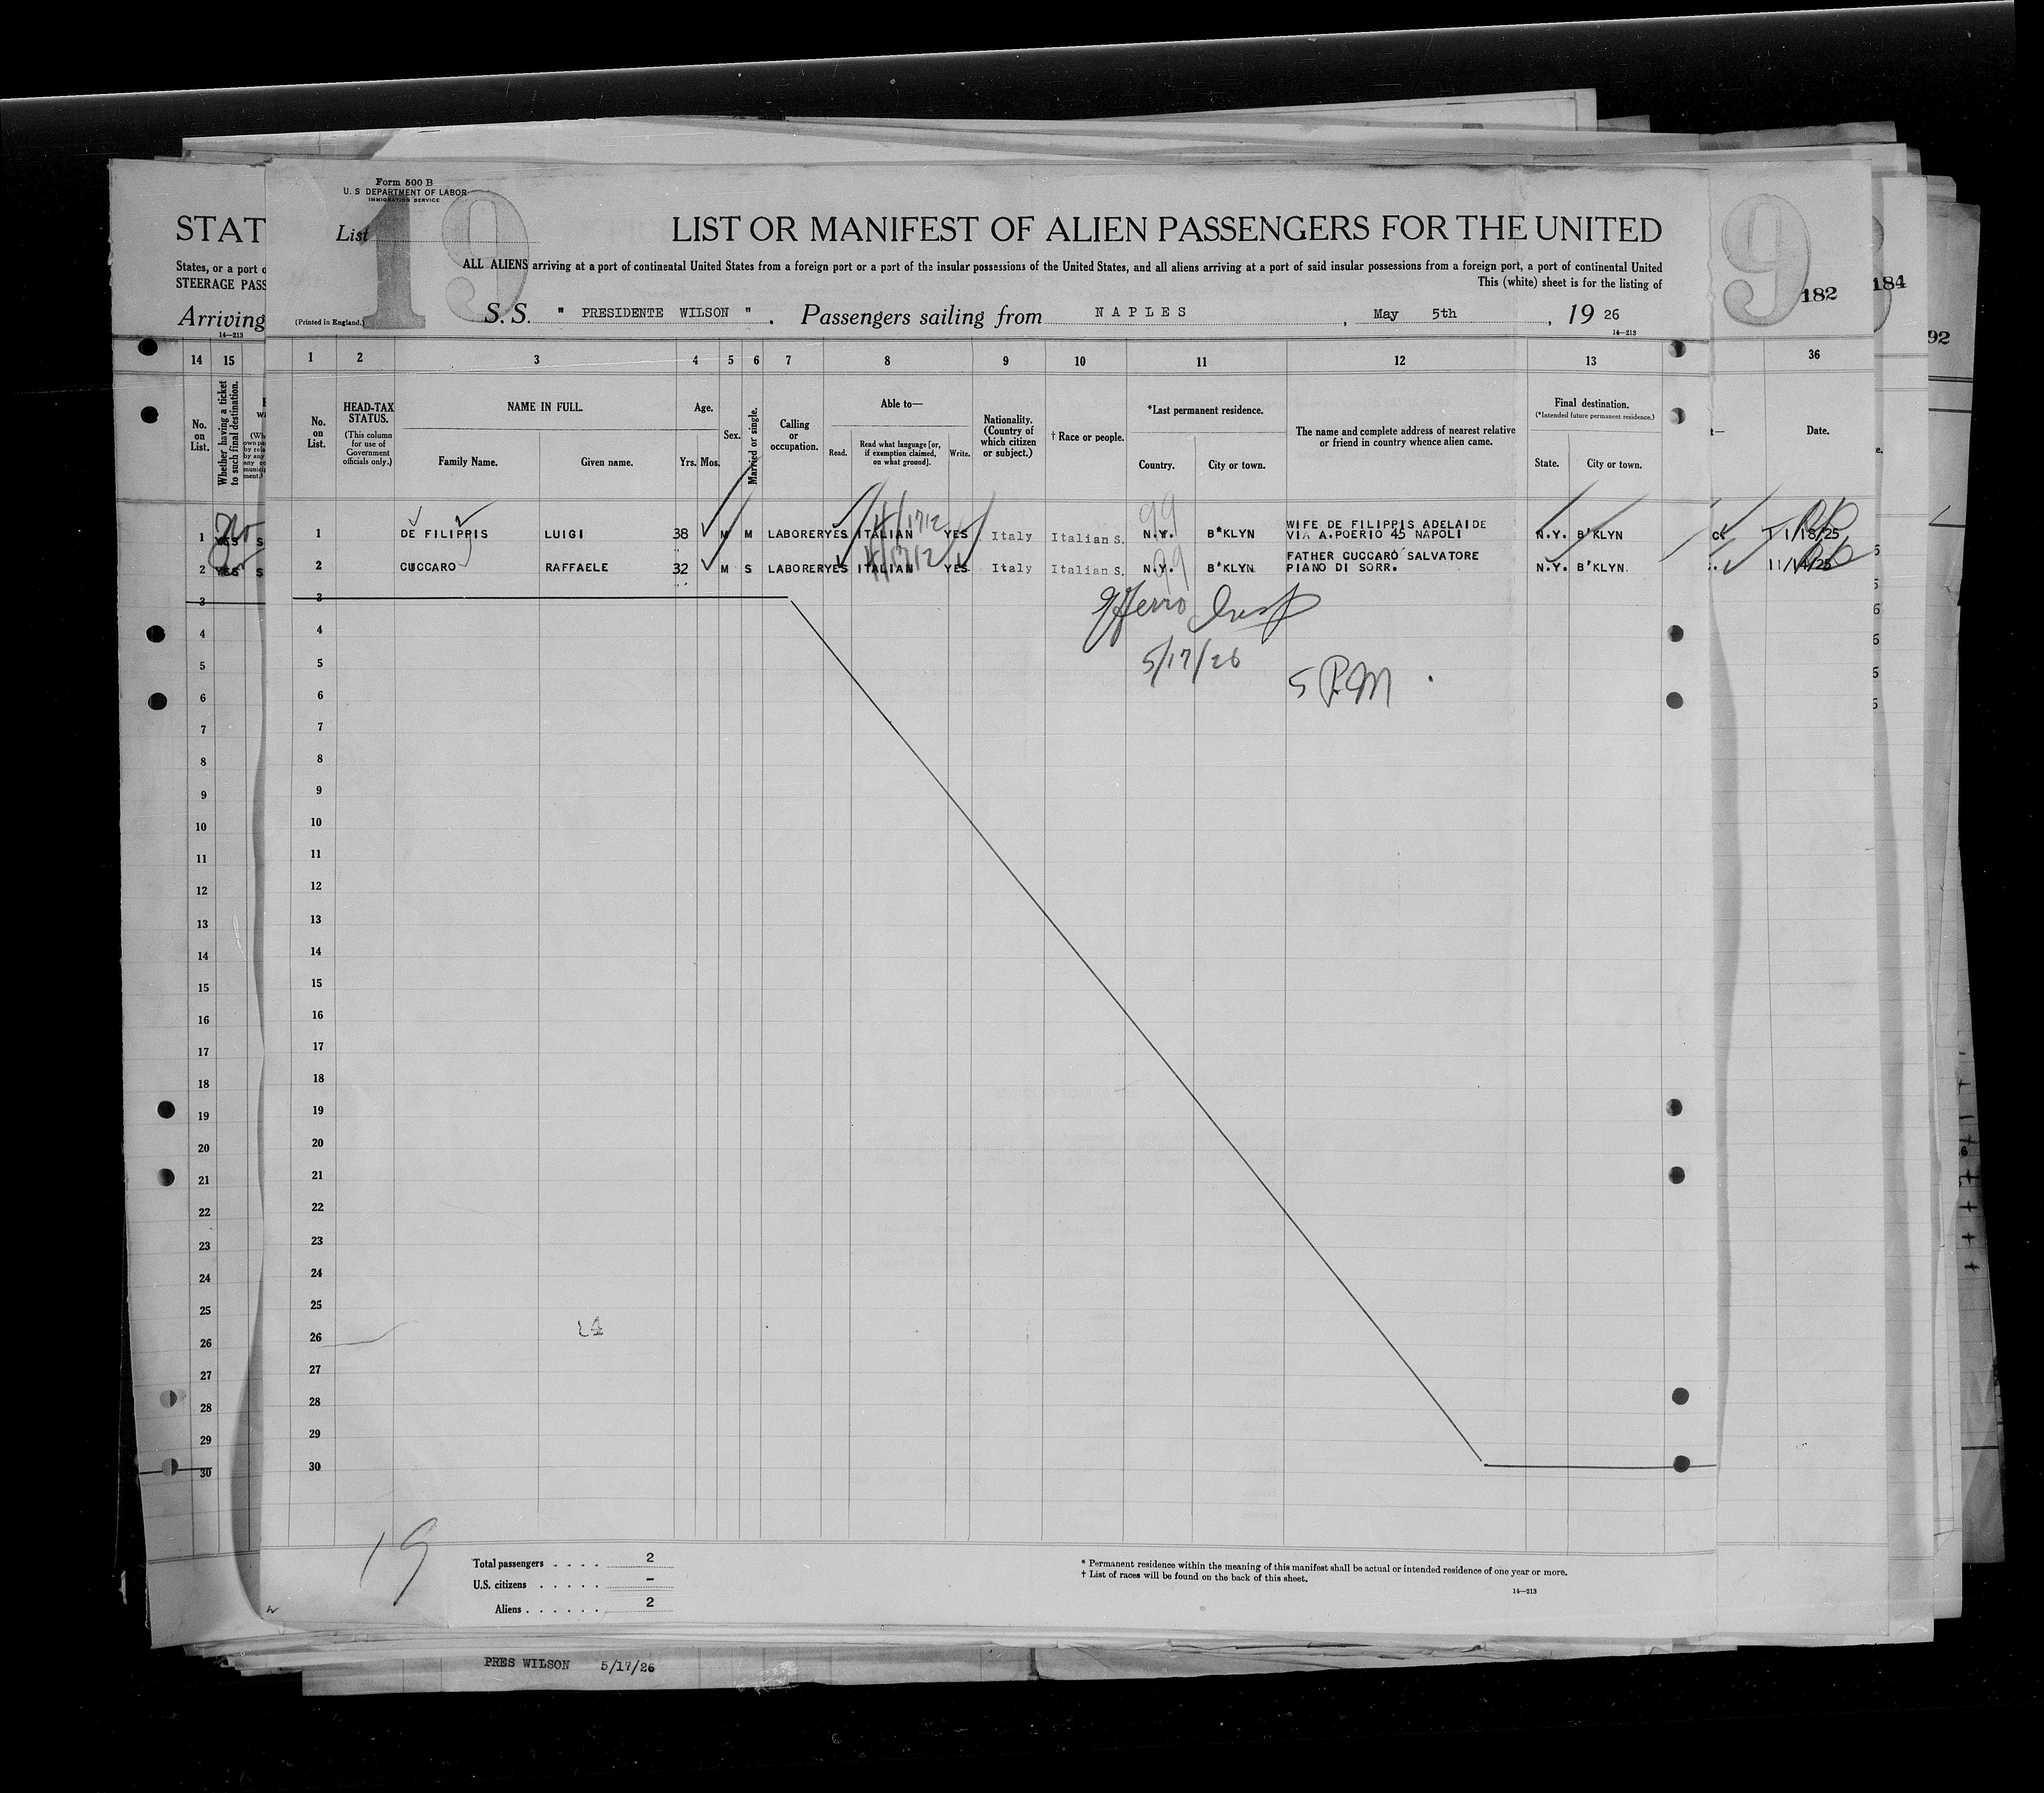 Form 500 B
U. S DEPARTMENT OF LABOR
IMMIGRATION SERVICE
List
19
LIST OR MANIFEST OF ALIEN PASSENGERS FOR THE UNITED
ALL ALIENS arriving at a port of continental United States from a foreign port or a port of the insular possessions of the United States, and all aliens arriving at a port of said insular possessions from a foreign port, a port of continental United
This (white) sheet is for the listing of
(Printed in England.)
S.S. " PRESIDENTE WILSON " . Passengers sailing from NAPLES , May 5th , 19 26
14—213
STAT
States, or a port o
STEERAGE PASS
Arriving
14—213
9
182
184
92
14 15
1 2 3 4 5 6 7 8 9 10 11 12 13
36
No. on List.
Whether having a ticket to such final destination.
No. on List.
HEAD-TAX STATUS.
(This column for use of Government officials only.)
NAME IN FULL.
Family Name.
Given name.
Age.
Yrs. Mos.
Sex.
Married or single.
Calling or occupation.
Able to—
Read.
Read what language [or, if exemption claimed, on what ground].
Write.
Nationality. (Country of which citizen or subject.)
† Race or people.
*Last permanent residence.
Country.
City or town.
The name and complete address of nearest relative or friend in country whence alien came.
Final destination.
(*Intended future permanent residence.)
State.
City or town.
Date.
1 YES S
1 DE FILIPPIS LUIGI 38 M M LABORER YES ITALIAN YES Italy Italian S. N.Y. B*KLYN WIFE DE FILIPPIS ADELAIDE VIA A.POERIO 45 NAPOLI N.Y. B'KLYN
99
2 YES S
2 CUCCARO RAFFAELE 32 M S LABORER YES ITALIAN YES Italy Italian S. N.Y. B'KLYN. FATHER CUCCARO SALVATORE PIANO DI SORR. N.Y. B'KLYN.
99
11/14/25
5/17/26
5 P.M
3
4
5
6
7
8
9
10
11
12
13
14
15
16
17
18
19
20
21
22
23
24
25
26
27
28
29
30
3
4
5
6
7
8
9
10
11
12
13
14
15
16
17
18
19
20
21
22
23
24
25
26
27
28
29
30
19
Total passengers . . . . 2
U.S. citizens . . . . . –
Aliens . . . . . . 2
* Permanent residence within the meaning of this manifest shall be actual or intended residence of one year or more.
† List of races will be found on the back of this sheet.
14—213
PRES WILSON 5/17/26